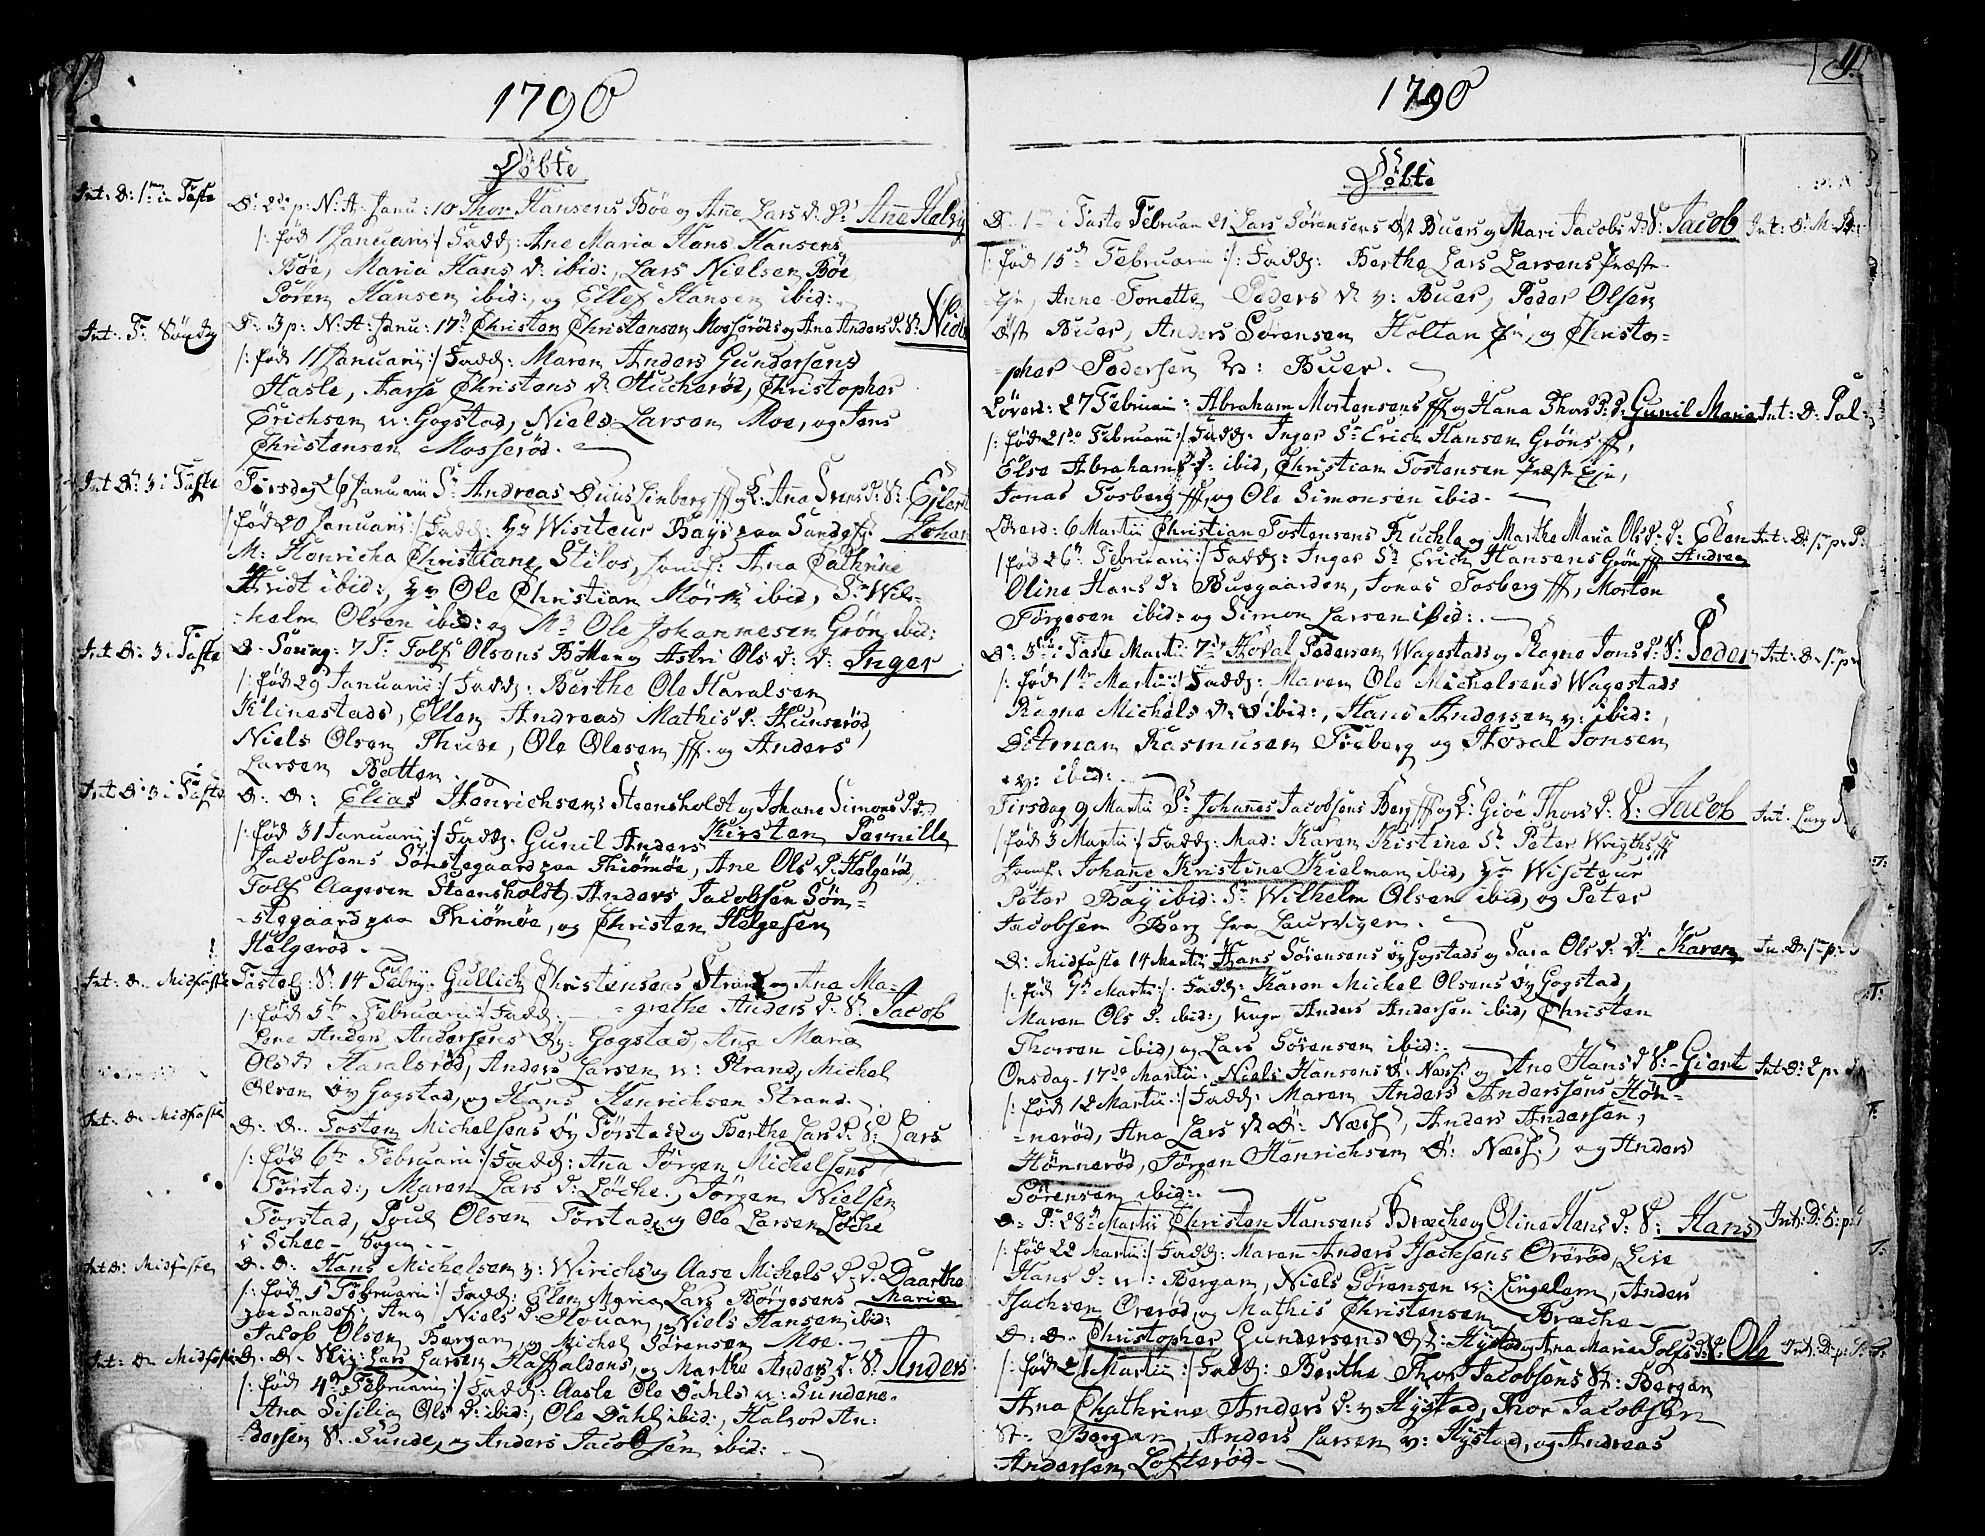 1790
Döbte
Int: D: 1ste in Faste
D: 2de p: N: A: Janu: 10 Thor Hansens Böe og Ane Lars d: D: Ane Helvig
/: fød 1 Januarii :/ Fadd: Ane Maria Hans Hansens
Böe, Maria Hans d: ibid:, Lars Nielsen Böe
Sören Hansen ibid:, og Ellef Hansen ibid:
Int: F: Söndg
D: 3 p: N: A: Janu: 17de Christen Christensen Mosseröds og Ane Anders d: S: Niels
/: fød 11 Januarii :/ Fadd: Maren Anders Gundersens
Hasle, Christens d: Hucheröd, Christopher
Erichsen v: Gogstad, Niels Larsen Moe, og Jens
Christensen Mosseröd.
Int: D: 3 i Faste
Tirsdag 26 Januarii Sr Andreas Linberg og Ana d: S: Ejlert
/: fød 20 Januarii :/ Fadd: Hr Wisiteur Bays paa Sandefj: Johan
M: Henricha Christiane Stilos, Jomf: Ana Cathrine
ibid:, Hr Ole Christian Mörk ibid, Sr Wil-
-helm Olsen ibid: og Mr Ole Johannesen Grön ibid:
Int: D: 3 i Faste
D: Söndg: 7 F: Tolf Olsens Botten og Astri Ols d: D: Inger
/: fød 29 Januarii :/ Fadd: Berthe Ole Haralsen
Klinestads, Ellen Andreas Mathis d: Hunseröd,
Niels Olsen Thuse, Ole Olesen ff. og Anders
Larsen Botten
Int: D: 3 i Faste
D: D: Elias Henrichsens Steensholdt og Johane Simons d: D:
/: fød 31 Januarii :/ Fadd: Gunil Anders Kirsten Pernille
Jacobsens Sönstegaard paa Thiömöe, Ane Ols d: Helgeröd,
Tolf Aagesen Steensholdt, Anders Jacobsen Sön-
-stegaard paa Thiömöe, og Christen Helgesen
Helgeröd.
Int: D: Midfaste
Fastel: S: 14 Febry: Gullich Christensens Strand og Ane Ma-
/: fød 5te Februarii :/ Fadd: -grethe Anders d: S: Jacob
Lene Anders Andersens Öy: Gogstad, Ane Maria
Ols d: Haralsröd, Anders Larsen v: Strand, Michel
Olsen Öy Gogstad, og Hans Henrichsen Strand.
Int: D: Midfaste
D: D: Tosten Michelsens öy Törstad og Berthe Lars d: S: Lars
/: fød 6te Februarii :/ Fadd: Ana Jörgen Michelsens
Törstad, Maren Lars d: Löche, Jörgen Nielsen
Törstad, Poul Olsen Törstad og Ole Larsen Löche
i Schee Sogn
Int: D: Midfaste
D: D: Hans Michelsen v: Wirichs og Aase Michels d: D: Daarthe
/: fød 5 Februarii :/ Fadd: Elen Maria Lars Börgesens Maria
paa Sandef, Ana Niels d: Houan, Niels Hansen ibid:
Jacob Olsen Bergan, og Michel Sörensen Moe.
Int: D: Midfaste
D: D: Lars Larsen Haffalsens, og Marthe Anders d: S: Anders
/: fød 4de Februarii :/ Fadd: Aasle Ole Dahls v: Sundene.
Ana Sisilia Ols d: ibid:, Ole Dahl ibid:, Halvor An:
-dersen S: Sunde, og Anders Jacobsen ibid:
1790
11.
Döbte
D: 1ste i Faste Februarii 21 Lars Sörensens Öst Buers og Mari Jacobs d: S: Jacob Int: D: M:
/: fød 15de Februarii :/: Fadd: Berthe Lars Larsens Præste
Eje, Anne Tonette Peders d: v: Buer, Peder Olsen
Öst Buer, Anders Sörensen Holtan Eie, og Christo-
-pher Pedersen v: Buer.
Löverd: 27 Februarii: Abraham Mortensens ff og Hana Thors d: D: Gunil Maria Int: D: Pal:
/: fød 21de Februarii :/ Fadd: Inger Sr Erich Hansen Gröns ff,
Else Abrahams d: ibid, Christian Tostensen Præste Eje,
Jonas Fosberg ff, og Ole Simonsen ibid.
Löverd: 6 Martii Christian Tostensens Kuchla og Marthe Maria Ols d: D: Elen Int: D: 1ste p: P:
/: fød 26de Februarii :/ Fadd: Inger Sr Erich Hansens Grön ff Andrea
Oline Hans d: Buegaarden, Jonas Fosberg ff, Morten
Törgesen ibid: og Simon Larsen ibid:
D: 3die i Faste Martii 7de Hoval Pedersen Wagestads og Ragne Jons d: S: Peder Int: D: 1ste p:
/: fød 1ste Martii :/ Fadd: Maren Ole Michelsens Wagestads
Ragne Michels d: ibid:, Hans Andersen v: ibid:,
Ditman Rasmusen Freberg og Hoval Jonsen
v: ibid:
Tirsdag 9 Martii Sr Johannes Jacobsens Berg ff og Gjöe Thors d: S: Jacob Int.
/: fød 3 Martii :/ Fadd: Mad: Karen Kistine Sr Peter Wrigths ff
Jomf: Johane Kristine Kielman ibid, Hr Wisiteur
Peter Bay ibid: Sr Wilhelm Olsen ibid, og Peter
Jacobsen Berg fra Laurvigen.
D: Midfaste 14 Martii Hans Sörensens öy Gogstads og Sara Ols d: D: Karen In: D: 1ste p:
/: fød 7de Martii :/ Fadd: Karen Michel Olsens öy Gogstad,
Maren Ols d: ibid:, Anders Andersen ibid, Christen
Thorsen ibid, og Lars Sörensen ibid:
Onsdag 17de Martii: Niels Hansens Ö: Næss: og Ane Hans d: S: Giert Int: D: 2 p:
/: fød 12 Martii :/ Fadd: Maren Anders Anderssens Hön-
-neröd, Ana Lars d: Ö: Næss, Anders Andersen,
Hönneröd, Jörgen Henrichsen Ö: Næss: og Anders
Sörensen ibid:
D: P: 28de Martii Christen Hansens Bræche og Oline Hans d: S: Hans Int: D: 5: p:
/: fød 22 Martii :/ Fadd: Maren Anders Isachsens Oreröd, Live
Hans d: v: Bergan, Niels Sörensen v: Lingelem, Anders
Isachsen Oreröd, og Mathis Christensen Bræche
D: D: Christopher Gundersens Öst: Hystad og Ana Maria Tolfs d: S: Ole Int: D: p:
/: fød 21 Martii :/ Fadd: Berthe Thor Jacobsens St: Bergan
Ana Chathrine Anders d: v Hystad, Thor Jacobsen
St: Bergan, Anders Larsen v: Hystad, og Andreas
Andersen Lofteröd.